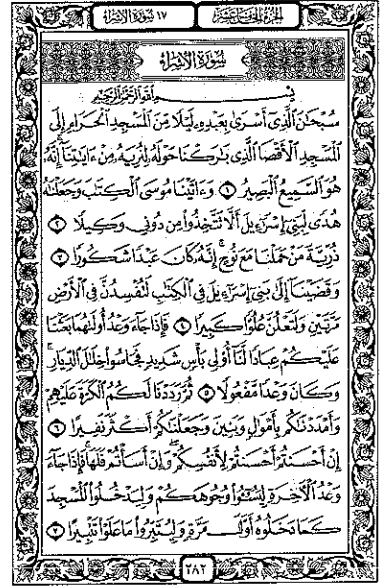 الجزء الخامس عشر
١٧ سورة الإسراء
سُورَةُ الإِسْرَاءِ
بِسْمِ ٱللَّهِ ٱلرَّحْمَٰنِ ٱلرَّحِيمِ
سُبْحَٰنَ ٱلَّذِىٓ أَسْرَىٰ بِعَبْدِهِۦ لَيْلًا مِّنَ ٱلْمَسْجِدِ ٱلْحَرَامِ إِلَى
ٱلْمَسْجِدِ ٱلْأَقْصَا ٱلَّذِى بَٰرَكْنَا حَوْلَهُۥ لِنُرِيَهُۥ مِنْ ءَايَٰتِنَآ إِنَّهُۥ
هُوَ ٱلسَّمِيعُ ٱلْبَصِيرُ ١ وَءَاتَيْنَا مُوسَى ٱلْكِتَٰبَ وَجَعَلْنَٰهُ
هُدًى لِّبَنِىٓ إِسْرَٰٓءِيلَ أَلَّا تَتَّخِذُوا۟ مِن دُونِى وَكِيلًا ٢
ذُرِّيَّةَ مَنْ حَمَلْنَا مَعَ نُوحٍ ۚ إِنَّهُۥ كَانَ عَبْدًا شَكُورًا ٣
وَقَضَيْنَآ إِلَىٰ بَنِىٓ إِسْرَٰٓءِيلَ فِى ٱلْكِتَٰبِ لَتُفْسِدُنَّ فِى ٱلْأَرْضِ
مَرَّتَيْنِ وَلَتَعْلُنَّ عُلُوًّا كَبِيرًا ٤ فَإِذَا جَآءَ وَعْدُ أُولَىٰهُمَا بَعَثْنَا
عَلَيْكُمْ عِبَادًا لَّنَآ أُو۟لِى بَأْسٍ شَدِيدٍ فَجَاسُوا۟ خِلَٰلَ ٱلدِّيَارِ ۚ
وَكَانَ وَعْدًا مَّفْعُولًا ٥ ثُمَّ رَدَدْنَا لَكُمُ ٱلْكَرَّةَ عَلَيْهِمْ
وَأَمْدَدْنَٰكُم بِأَمْوَٰلٍ وَبَنِينَ وَجَعَلْنَٰكُمْ أَكْثَرَ نَفِيرًا ٦
إِنْ أَحْسَنتُمْ أَحْسَنتُمْ لِأَنفُسِكُمْ ۖ وَإِنْ أَسَأْتُمْ فَلَهَا ۚ فَإِذَا جَآءَ
وَعْدُ ٱلْءَاخِرَةِ لِيَسُـۥٓـُٔوا۟ وُجُوهَكُمْ وَلِيَدْخُلُوا۟ ٱلْمَسْجِدَ
كَمَا دَخَلُوهُ أَوَّلَ مَرَّةٍ وَلِيُتَبِّرُوا۟ مَا عَلَوْا۟ تَتْبِيرًا ٧
٢٨٢